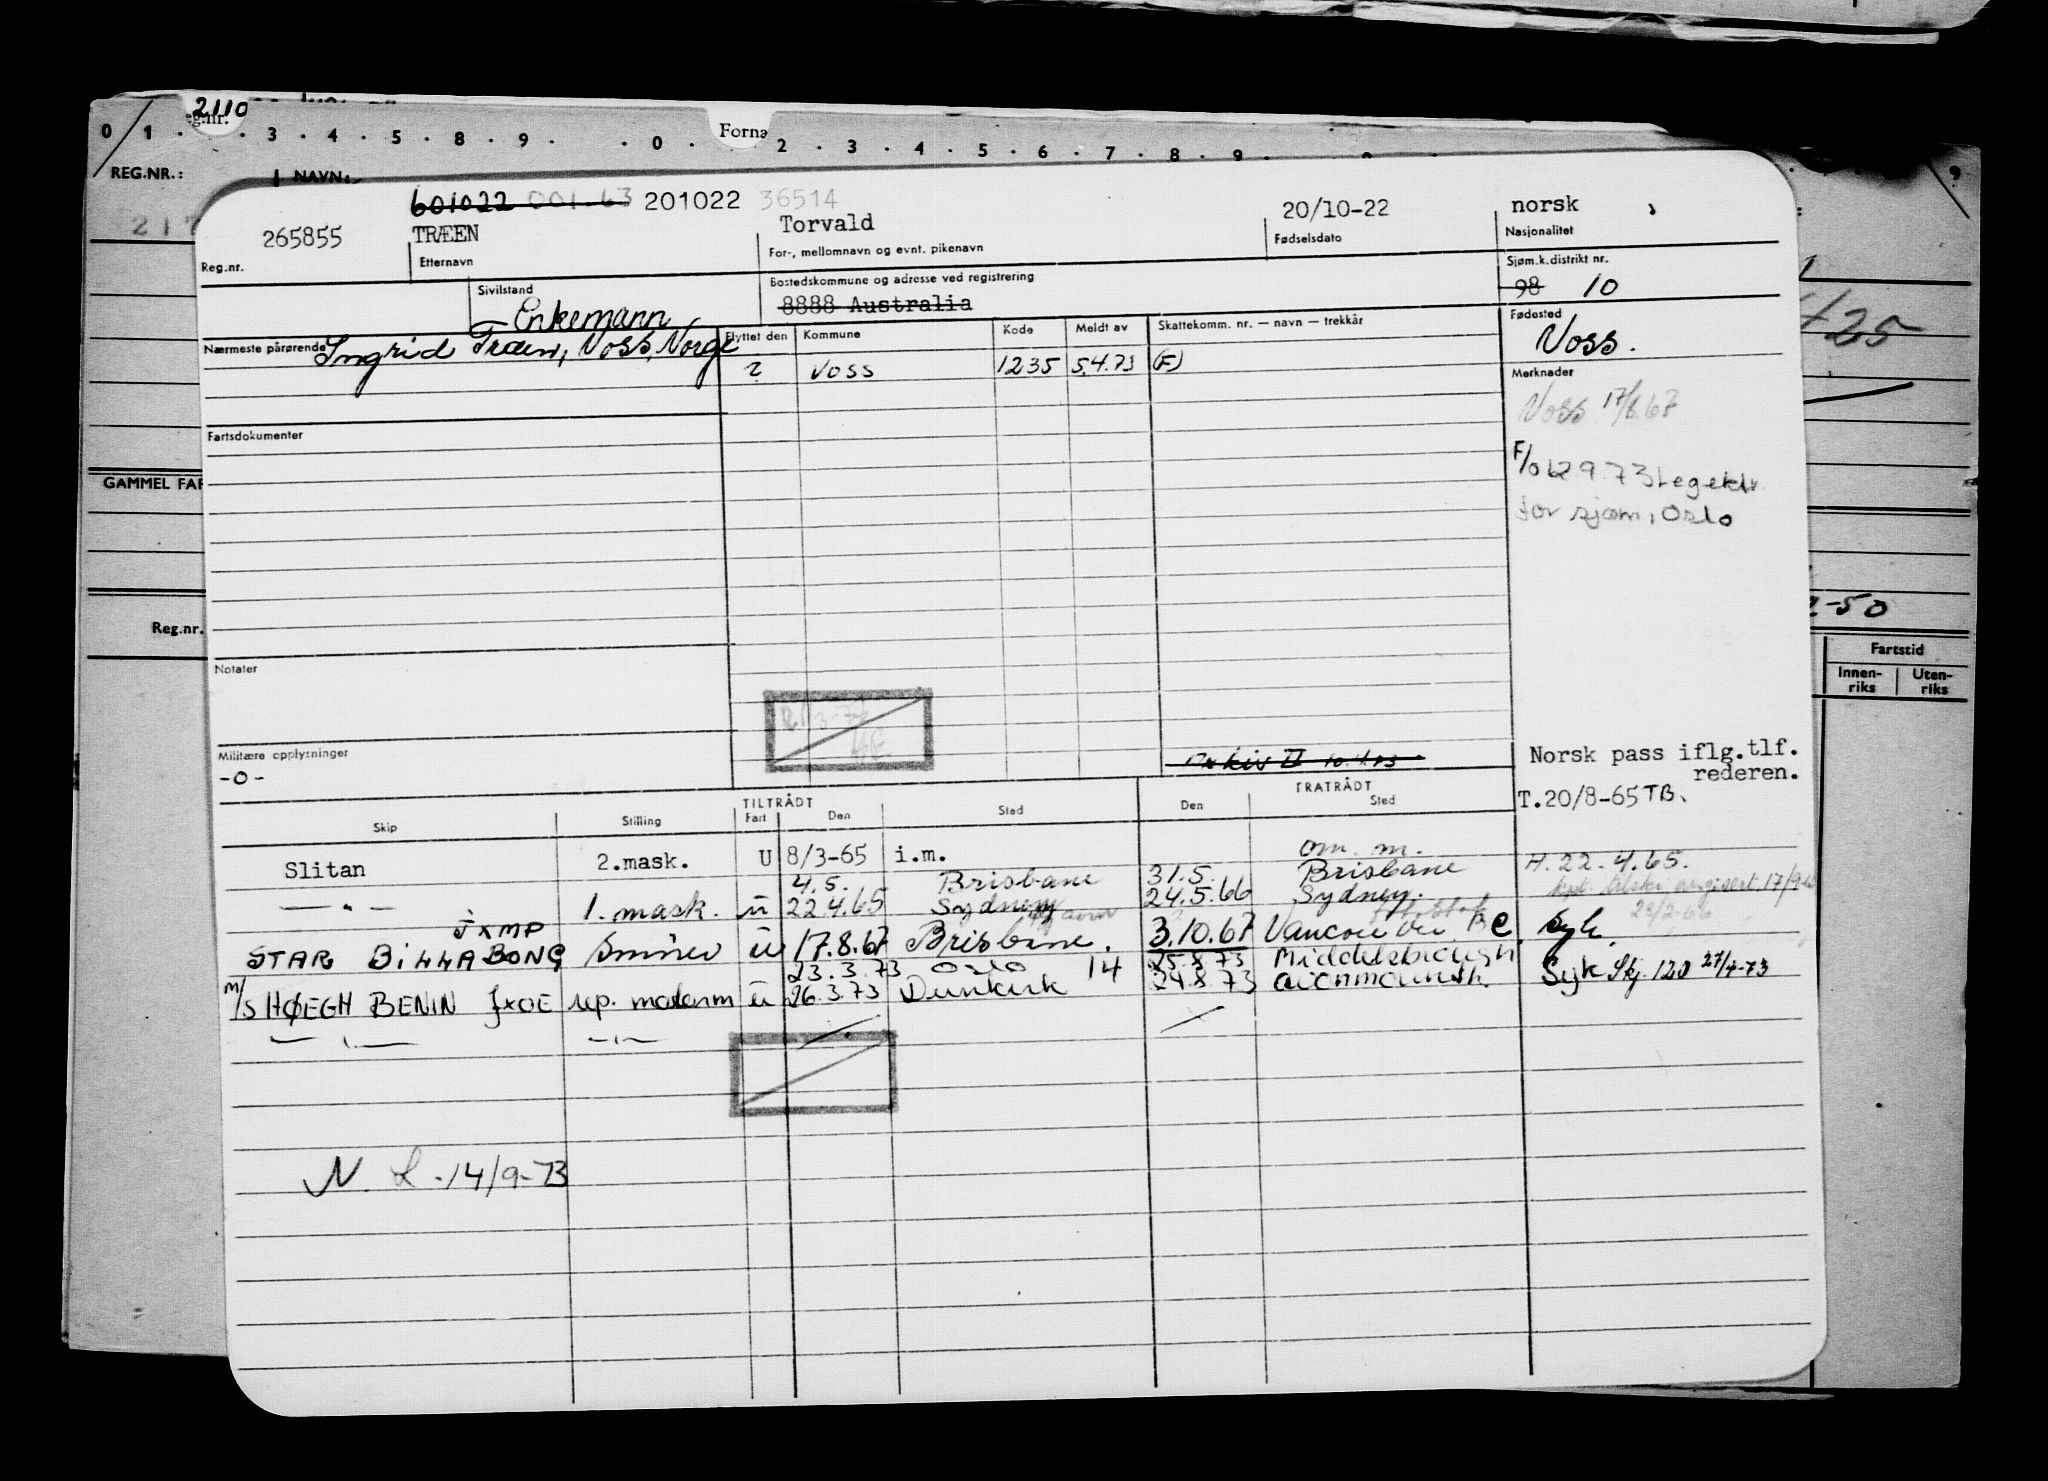 2110
eg.nr.
Forna
0 1 . . 3 . 4 . 5 . 8 . 9 . . 0 . 2 . 3 . 4 . 5 . 6 . 7 . 8 . 9 .
REG.NR.: NAVN:
217
601022 001.63 201022 36514
265855 TRÆEN Torvald 20/10-22 norsk
Reg.nr. Etternavn For-, mellomnavn og evnt. pikenavn Fødselsdato Nasjonalitet
Sivilstand Bostedskommune og adresse ved registrering Sjøm.k.distrikt nr.
Enkemann 8888 Australia 98 10
Nærmeste pårørende Ingrid Træen, Voss, Norge Flyttet den Kommune Kode Meldt av Skattekomm. nr. — navn — trekkår Fødested
Voss.
? Voss 1235 5.4.73 (F)
Merknader
Voss 17/8.67
Fartsdokumenter
F/o 12.9.73 Legektr.
for sjøm, Oslo
GAMMEL FAR
425
2-50
Reg.nr.
Fartstid
Innen-riks Uten-riks
Notater
Militære opplysninger
-0-
Arkiv II
Norsk pass iflg. tlf.
rederen.
T.20/8-65 TB.
TILTRÅDT FRATRÅDT
Skip Stilling Fart Den Sted Den Sted
Slitan 2.mask. U 8/3-65 i.m. om. m.
4.5. Brisbane 31.5. Brisbane H. 22.4.65.
— " — 1. mask. u 22.4.65 Sydney 24.5.66 Sydney. 17/9
28/2-66
JXMP
STAR BILLABONG Smører u 17.8.67 Brisbane. 3.10.67 Vancouver BC syk
23.3.73 Oslo 14 25.8.73 Middelsbrough
M/S HØEGH BENIN JXOE rep. motorm u 26.3.73 Dunkirk 24.8.73 Syk Skj. 120 27/4-73
— " — — " —
N. L. 14/9-73